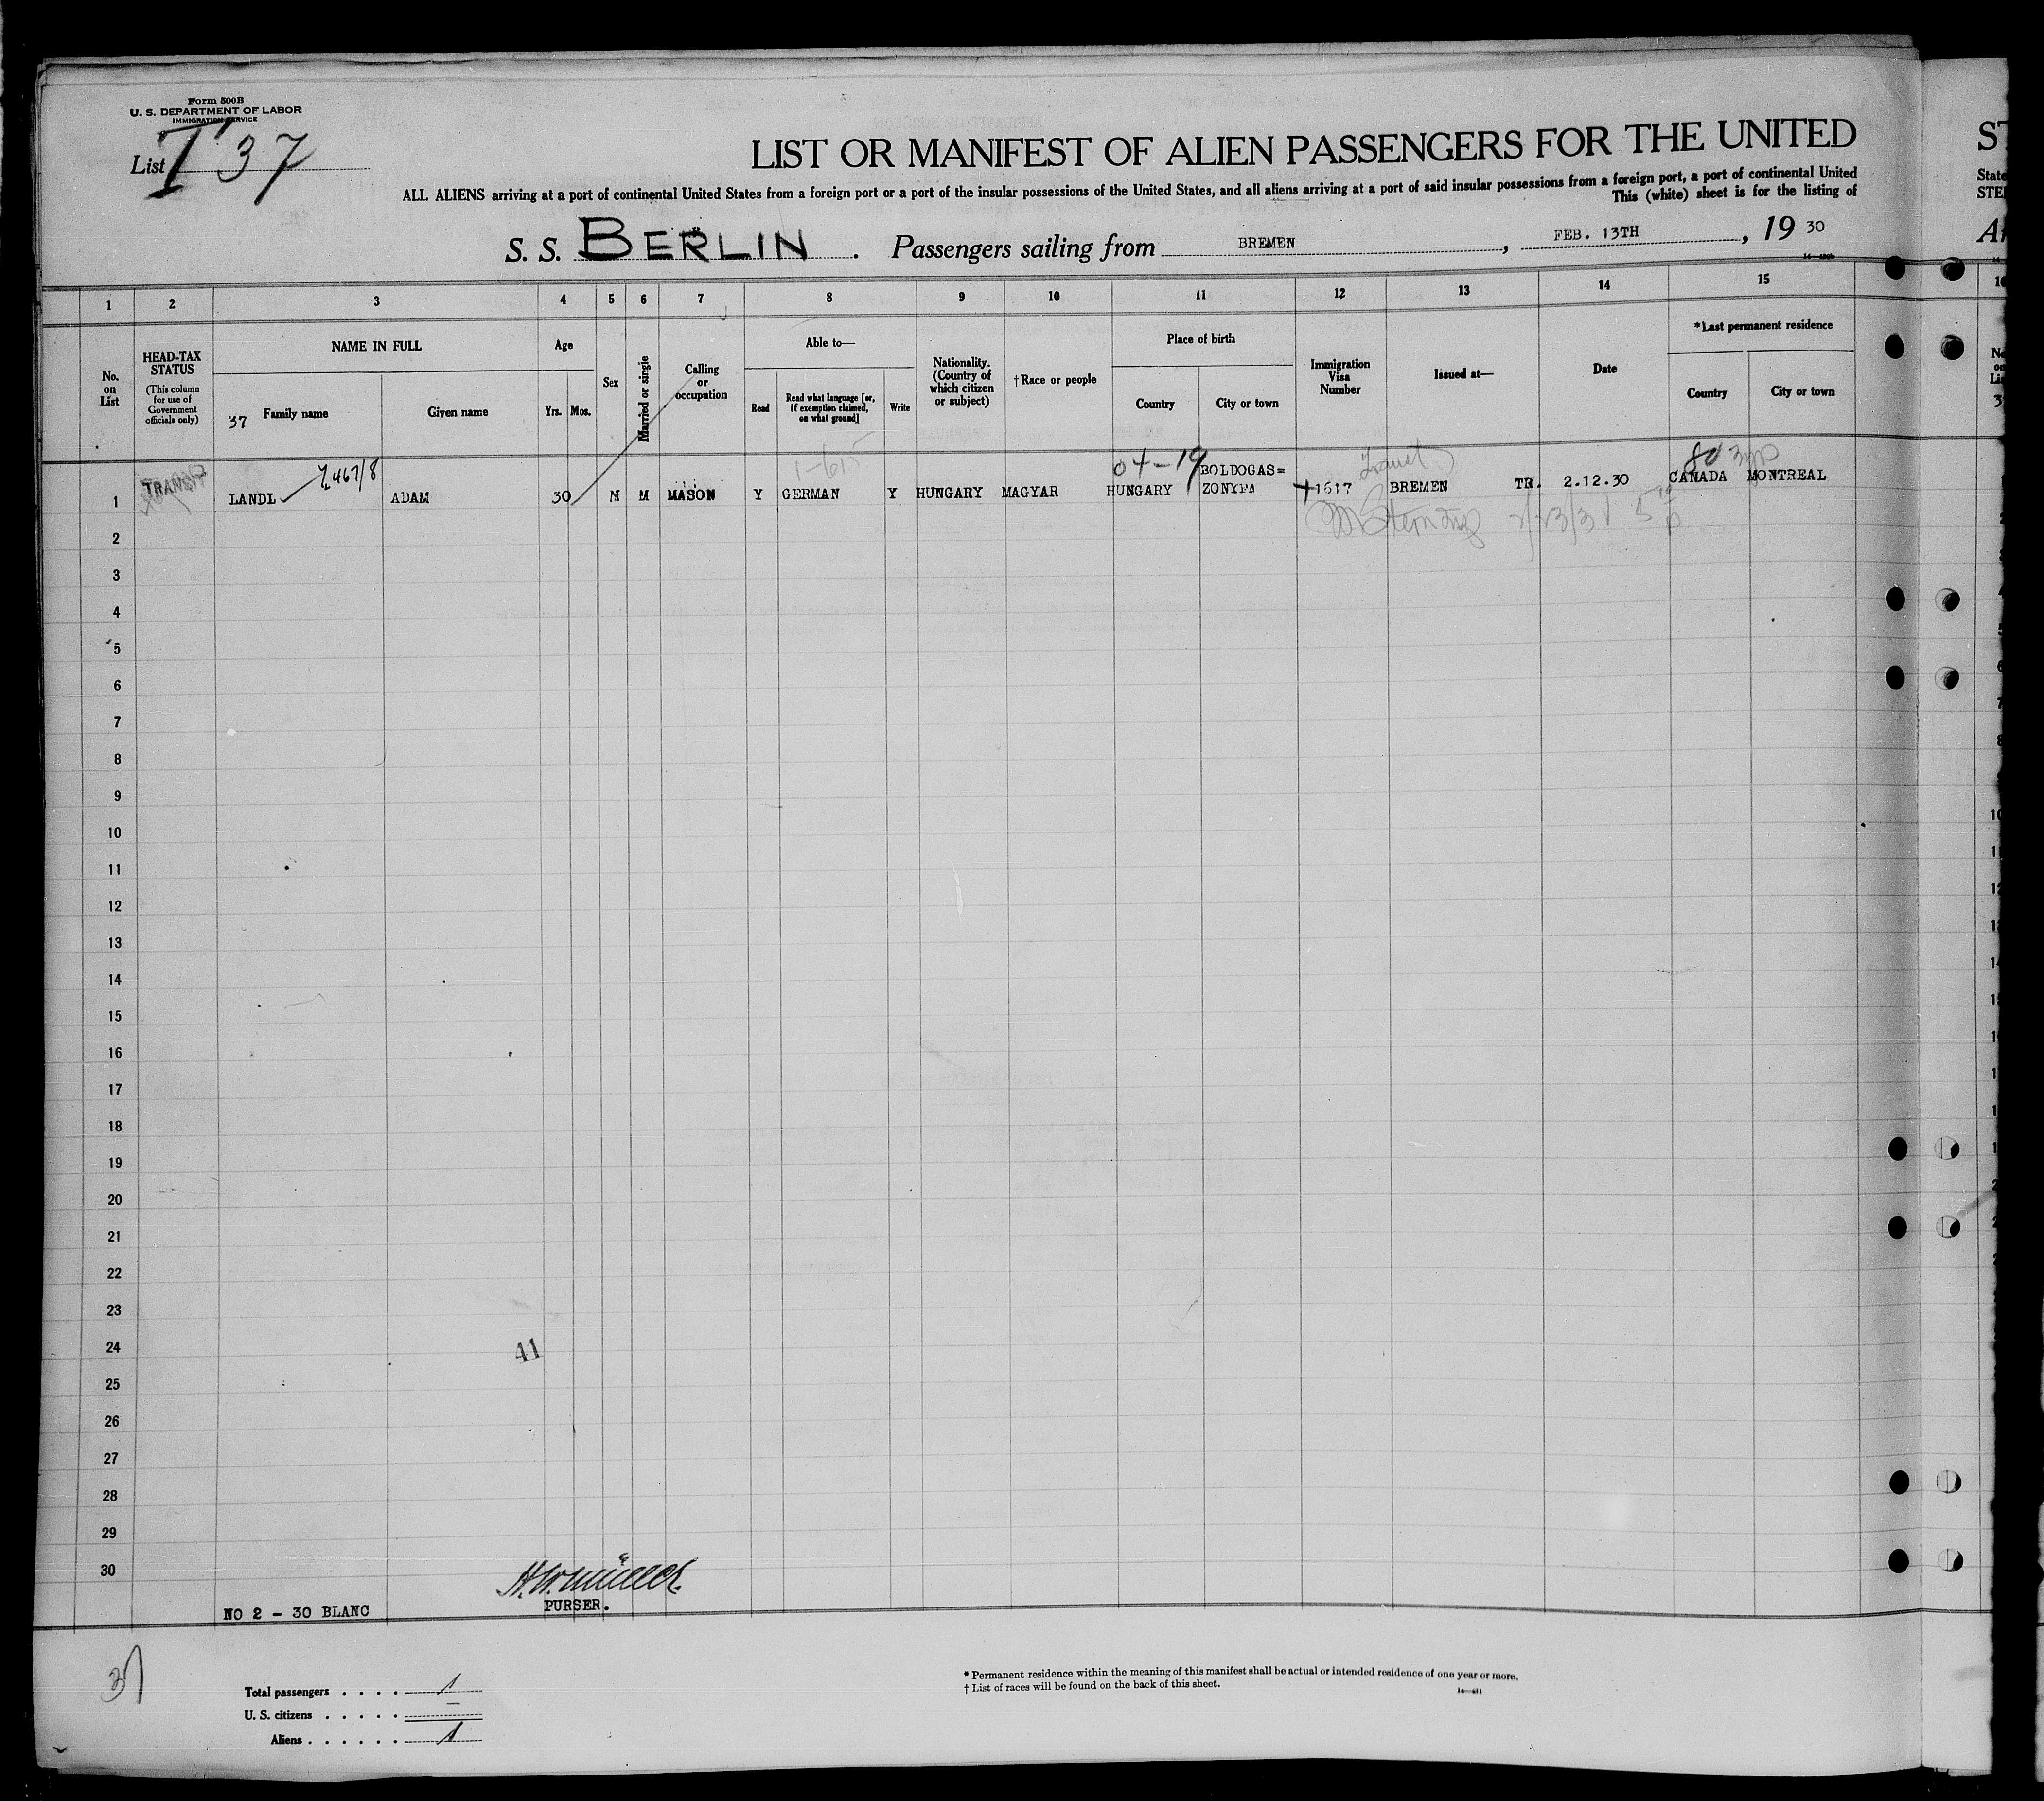 Form 500B
U. S. DEPARTMENT OF LABOR
IMMIGRATION SERVICE
List T 37
LIST OR MANIFEST OF ALIEN PASSENGERS FOR THE UNITED
ALL ALIENS arriving at a port of continental United States from a foreign port or a port of the insular possessions of the United States, and all aliens arriving at a port of said insular possessions from a foreign port, a port of continental United
This (white) sheet is for the listing of
S. S. BERLIN . Passengers sailing from BREMEN , FEB. 13TH , 19 30
1 2 3 4 5 6 7 8 9 10 11 12 13 14 15
No. on List
HEAD-TAX STATUS
(This column for use of Government officials only)
NAME IN FULL
37 Family name
Given name
Age
Yrs. Mos.
Sex
Married or single
Calling or occupation
Able to—
Read
Read what language [or, if exemption claimed, on what ground]
Write
Nationality. (Country of which citizen or subject)
†Race or people
Place of birth
Country
City or town
Immigration Visa Number
Issued at—
Date
*Last permanent residence
Country
City or town
04-19 BOLDOGAS=
1 TRANSIT LANDL ADAM 30 M M MASON Y GERMAN Y HUNGARY MAGYAR HUNGARY ZONYFA 1617 BREMEN TR. 2.12.30 CANADA MONTREAL
2
3
4
5
6
7
8
9
10
11
12
13
14
15
16
17
18
19
20
21
22
23
24
41
25
26
27
28
29
30
NO 2 - 30 BLANC
PURSER.
37
Total passengers . . . . 1
U. S. citizens . . . . . —
Aliens . . . . . . 1
* Permanent residence within the meaning of this manifest shall be actual or intended residence of one year or more.
† List of races will be found on the back of this sheet.